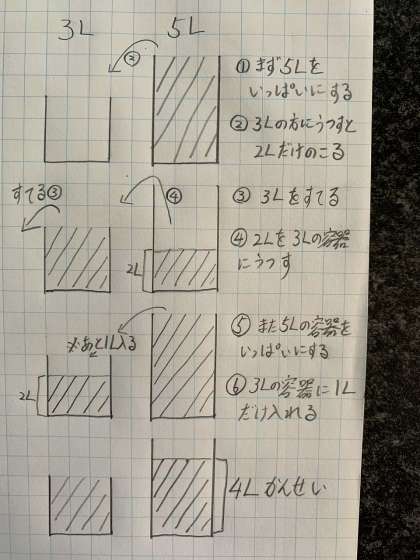 3L 5L
②
① まず5Lを
いっぱいにする
② 3Lの方にうつすと
2Lだけのこる
すてる③
④
③ 3Lをすてる
④ 2Lを3Lの容器
にうつす
2L
⑤ また5Lの容器を
いっぱいにする
※あと1L入る
⑥ 3Lの容器に1L
だけ入れる
2L
4Lかんせい